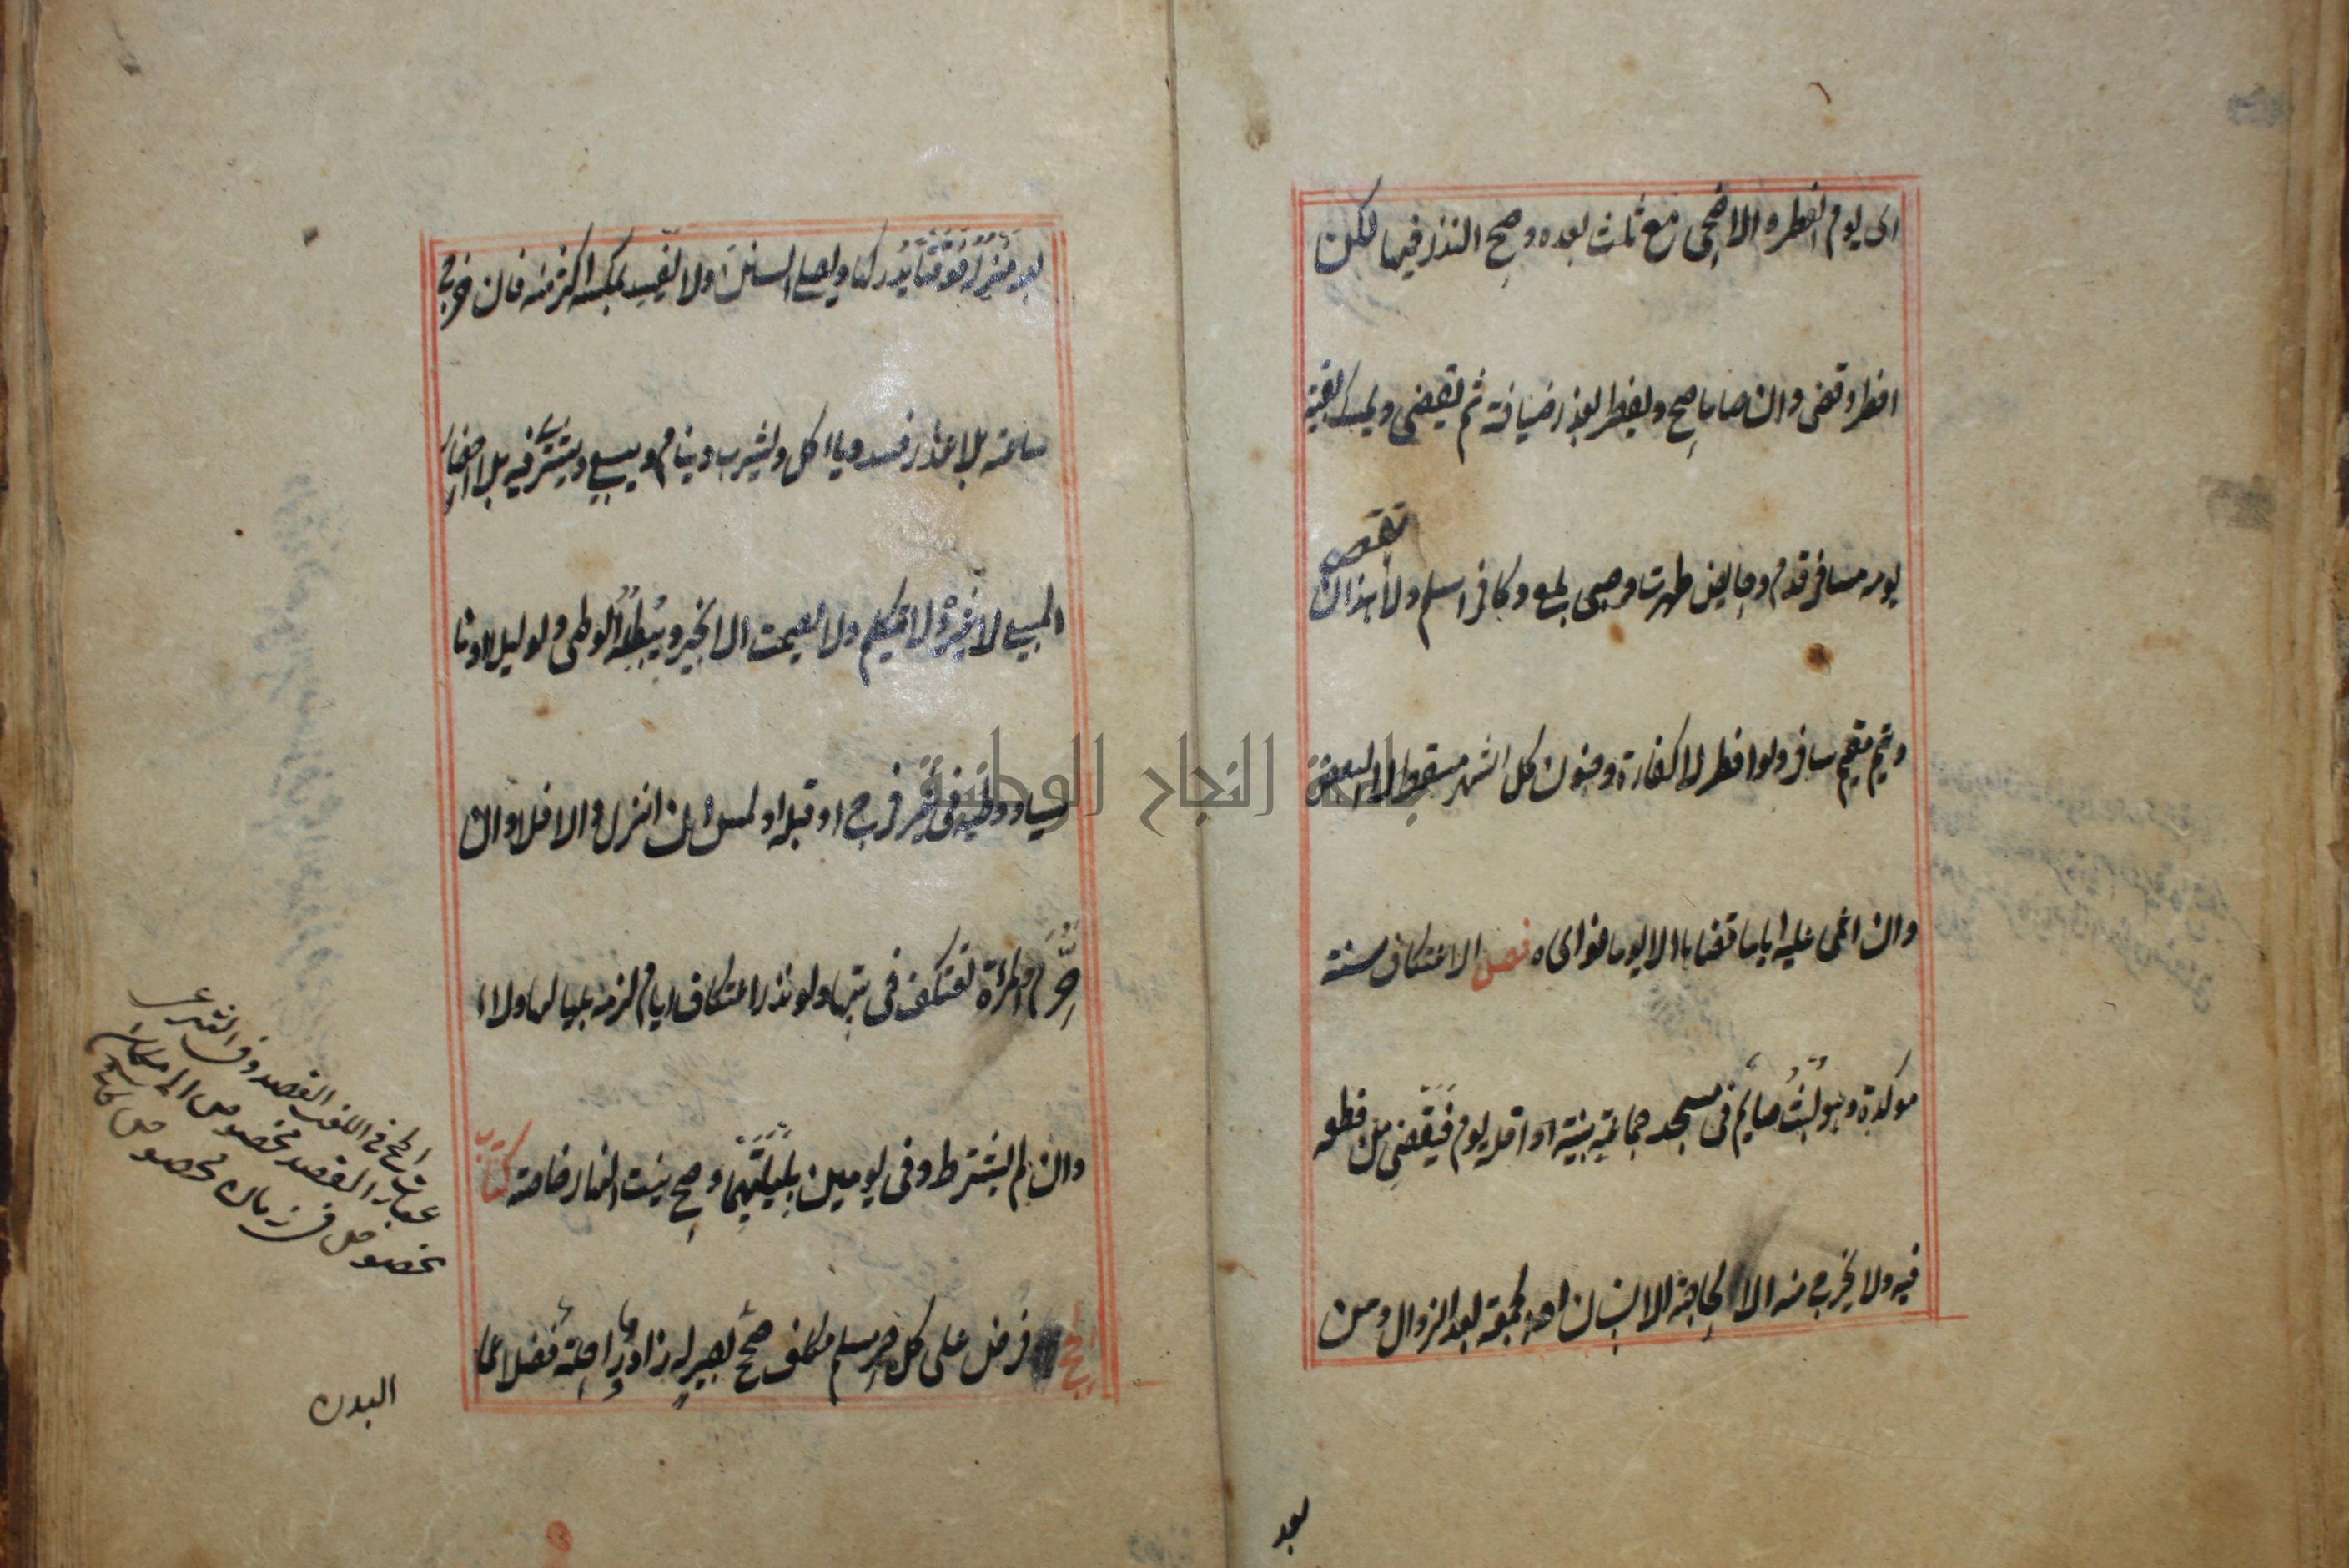 الى يوم الفطر والاضحى مع ثلث بعده وصح النذر فيها لكن
افطر وقضى وان صامها صح ويفطر بعذر ضيافة ثم يقضى ويمسك بقية
يومه مسافر قدم وحايض طهرت وصبى بلغ وكافر اسلم ولا
ويتم مقيم سافر ولو افطر لا كفارة وجنون كل الشهر مسقط لا البعض
وان اغمى عليه اياما قضاها الا يوما نواه فصل الاعتكاف سنة
موكدة وهو لبث صايم فى مسجد جماعة بنيته او اقله يوم فيقضى من قطعه
فيه ولا يخرج منه الا لحاجة الانسان او لجمعة بعد الزوال ومن
بعد
بعد منزله فوقتا يدركها ويصلى السنن ولا يفسد بمكثه اكثر منه فان خرج
ساعة بلا عذر فسد وياكل ويشرب وينام ويبيع ويشترى فيه بلا احضار
المبيع لا غيره ولا يتكلم ولا يصمت الا بخير ويبطله الوطى ولو ليلا او نا
سيا ووطيه فى غير فرج او قبلة او لمس ان انزل والا فلا وان
حرم والمرأة تعتكف فى بيتها ولو نذر اعتكاف ايام لزمه بلياليها ولاء
وان لم يشترط وفى يومين بليلتيهما وصح نيت النهار خاصة كتاب
الحج فرض على كل حر مسلم مكلف صحيح بصير له زاد وراحلة فضلا عما
الحج فى اللغت القصد وفى الشرع
عبارت القصد مخصوص الى مكان
مخصوص فى زمان مخصوص
البدن
جامعة النجاح الوطنية